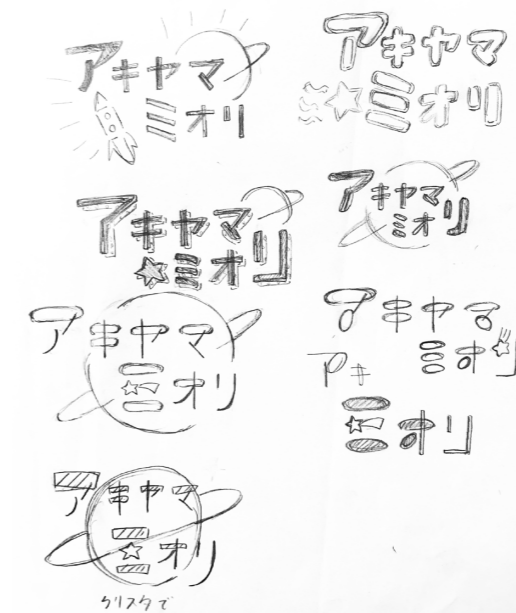 アキヤマ
ミオリ
アキヤマ
ミオリ
アキヤマ
ミオリ
アキヤマ
ミオリ
アキヤマ
ミオリ
アキヤマ
ミオリ
アキ
ミオリ
アキヤマ
ミオリ
クリスタで